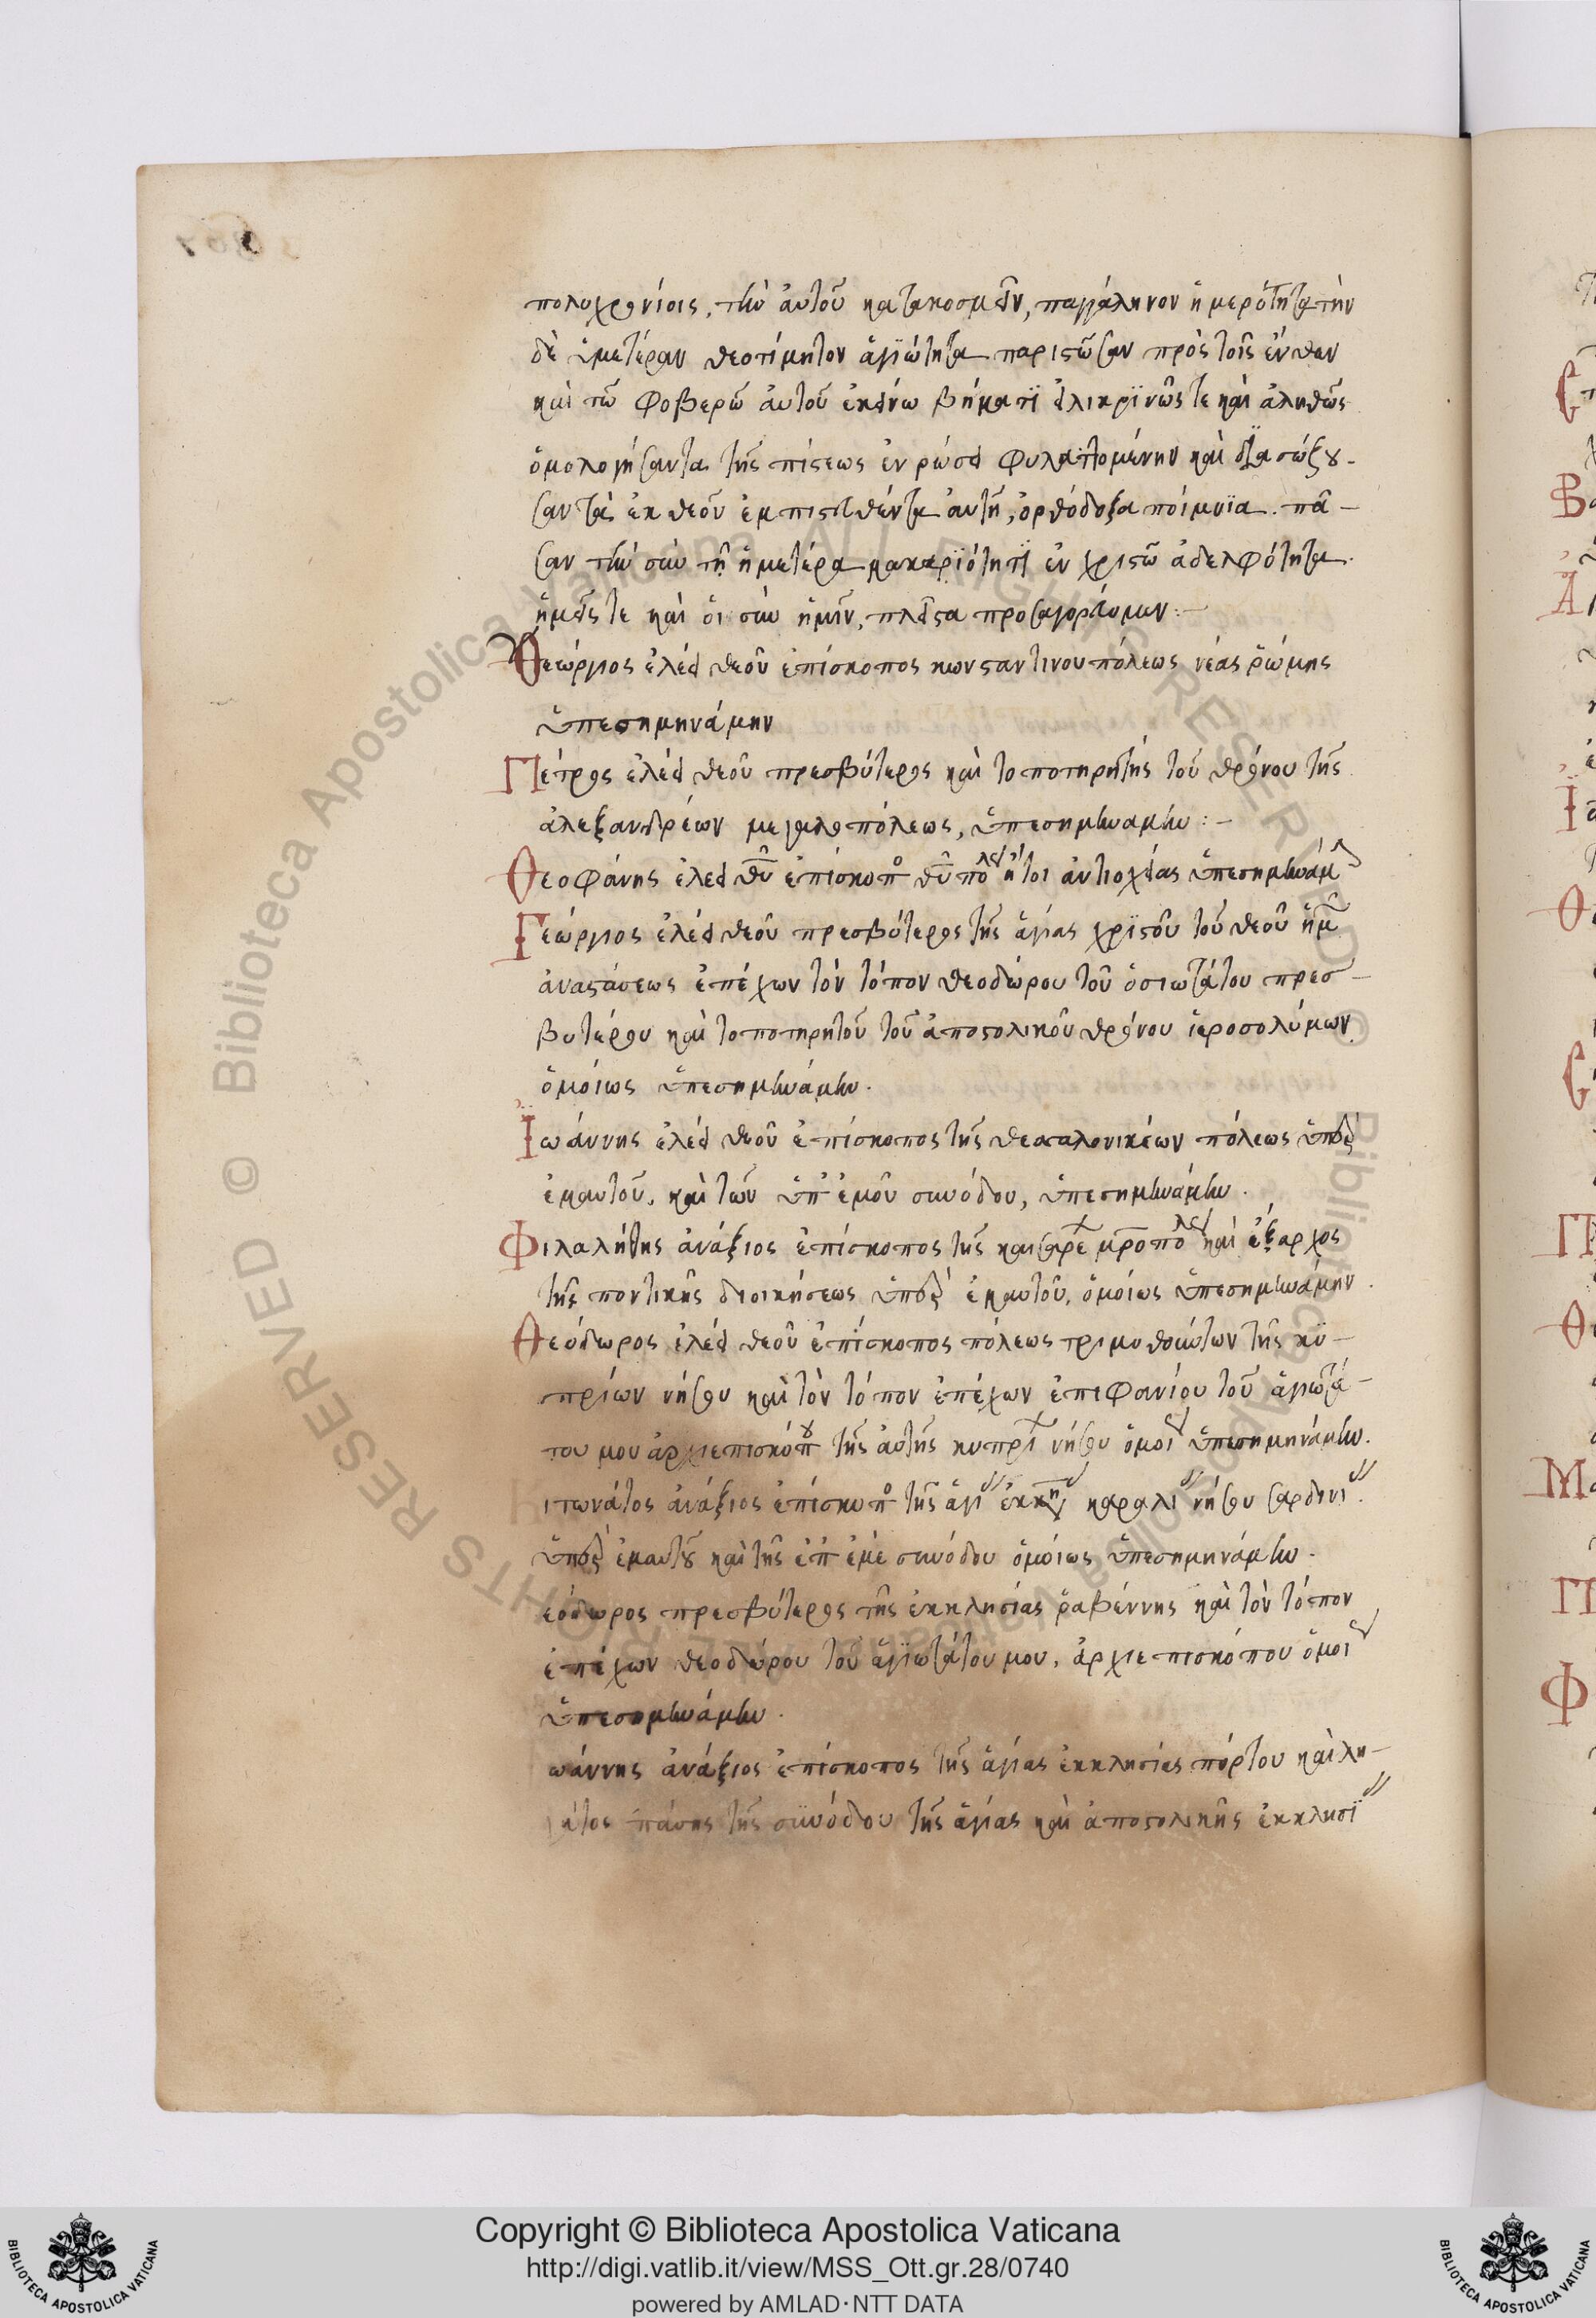 πολυχρονίοις, τὴν ἀυτοῦ κατακοσμεῖν, παγγάληνον ἡμερότητα τὴν
δὲ ὑμετέραν θεοτίμητον ἁγϊώτητα παριϛῶσαν πρὸς τοῖς ἐνθεν
καὶ τῶ φοβερῶ ἀυτοῦ ἐκείνω βήματϊ εἰλικρϊνῶς τε καὶ ἀληθῶς
ὁμολογήσαντα τῆς πίϛεως ἐν ρώσει φυλαττομένην καὶ δϊασώζου-
σαν τὰ ἐκ θεοῦ ἐμπιϛευθέντα ἀυτῆ, ὀρθόδοξα ποίμνϊα. πᾶ-
σαν τὴν σὺν τῆ ἡμετέρα μακαρϊότητϊ ἐν χριϛῶ ἀδελφότητα.
ἡμεῖς τε καὶ ὁι σὺν ἡμῖν, πλεῖϛα προσαγορέυομεν:-
Θεώργιος ἐλέει θεοῦ ἐπίσκοπος κωνϛαντινουπόλεως νέας ῥώμης
ὑπεσημηνάμην
Πέτρος ἐλέει θεοῦ πρεσβύτερος καὶ τοποτηρητὴς τοῦ θρόνου τῆς
ἀλεξανδρέων μεγαλοπόλεως, ὑπεσημηναμην:-
Θεοφάνης ἐλεει θ̅υ̅ ἐπίσκοπο θ̅υ̅πολε ἤτοι ἀντιοχείας ὑπεσημηνάμ
Γεώργιος ἐλέει θεοῦ πρεσβύτερος τῆς ἁγίας χρϊϛοῦ τοῦ θεοῦ ἡμ
ἀναϛάσεως ἐπέχων τὸν τόπον θεοδώρου τοῦ ὁσιωτάτου πρεσ-
βυτέρου καὶ τοποτηρητοῦ τοῦ ἀποϛολικοῦ θρόνου ἱεροσολύμων
ὁμόιως ὑπεσημηνάμην.
Ἰωάννης ἐλέει θεοῦ ἐπίσκοπος τῆς θεσσαλονικέων πόλεως ὑπὲρ
ἐμαυτοῦ, καὶ τῶν ὑπ' ἐμοῦ συνόδου, ὑπεσημηνάμην.
Φιλαλήθης ἀνάξιος ἐπίσκοπος τῆς καισαρε μ̅ρ̅οπολε καὶ ἔξαρχος
τῆς ποντικῆς διοικήσεως ὑπὲρ ἐμαυτοῦ, ὁμόιως ὑπεσημηνάμην.
Θεόδωρος ἐλέει θεοῦ ἐπίσκοπος πόλεως τριμυθούντων τῆς κϋ-
πρίων νήσου καὶ τὸν τόπον ἐπέχων ἐπιφανίου τοῦ ἁγιωτά-
του μου ἀρχιεπισκόπου τῆς ἀυτῆς κυπρΐ νήσου ὁμοι ὑπεσημηνάμην.
ιτωνάτος ἀνάξιος ἐπίσκοπο τῆς ἁγι ἐκκη καραλι νήσου σαρδινι.
ὑπὲρ ἐμαυτοῦ καὶ τῆς ἐπ ἐμὲ συνόδου ὁμόιως ὑπεσημηνάμην.
εόδωρος πρεσβύτερος τῆς ἐκκλησίας ῥαβέννης καὶ τὸν τόπον
ἐπέχων θεοδώρου τοῦ ἁγϊωτάτου μου, ἀρχιεπισκόπου ὁμοι
ὑπεσημηνάμην.
ωάννης ἀνάξιος ἐπίσκοπος τῆς ἁγίας ἐκκλησίας πόρτου καὶ λη-
γάτος πάσης τῆς συνόδου τῆς ἁγίας καὶ ἀποϛολικῆς ἐκκλησΐ
Copyright © Biblioteca Apostolica Vaticana
http://digi.vatlib.it/view/MSS_Ott.gr.28/0740
powered by AMLAD·NTT DATA